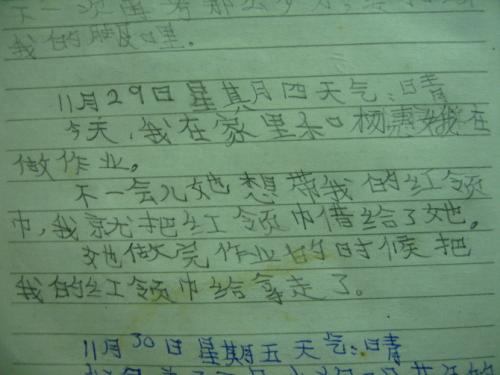 我的
11月29日 星期四天气:晴
今天,我在家里和杨惠娥在
做作业。
不一会儿她想带我的红领
巾,我就把红领巾借给了她。
她做完作业的时候把
我的红领巾给拿走了。
11月30日 星期五 天气:晴